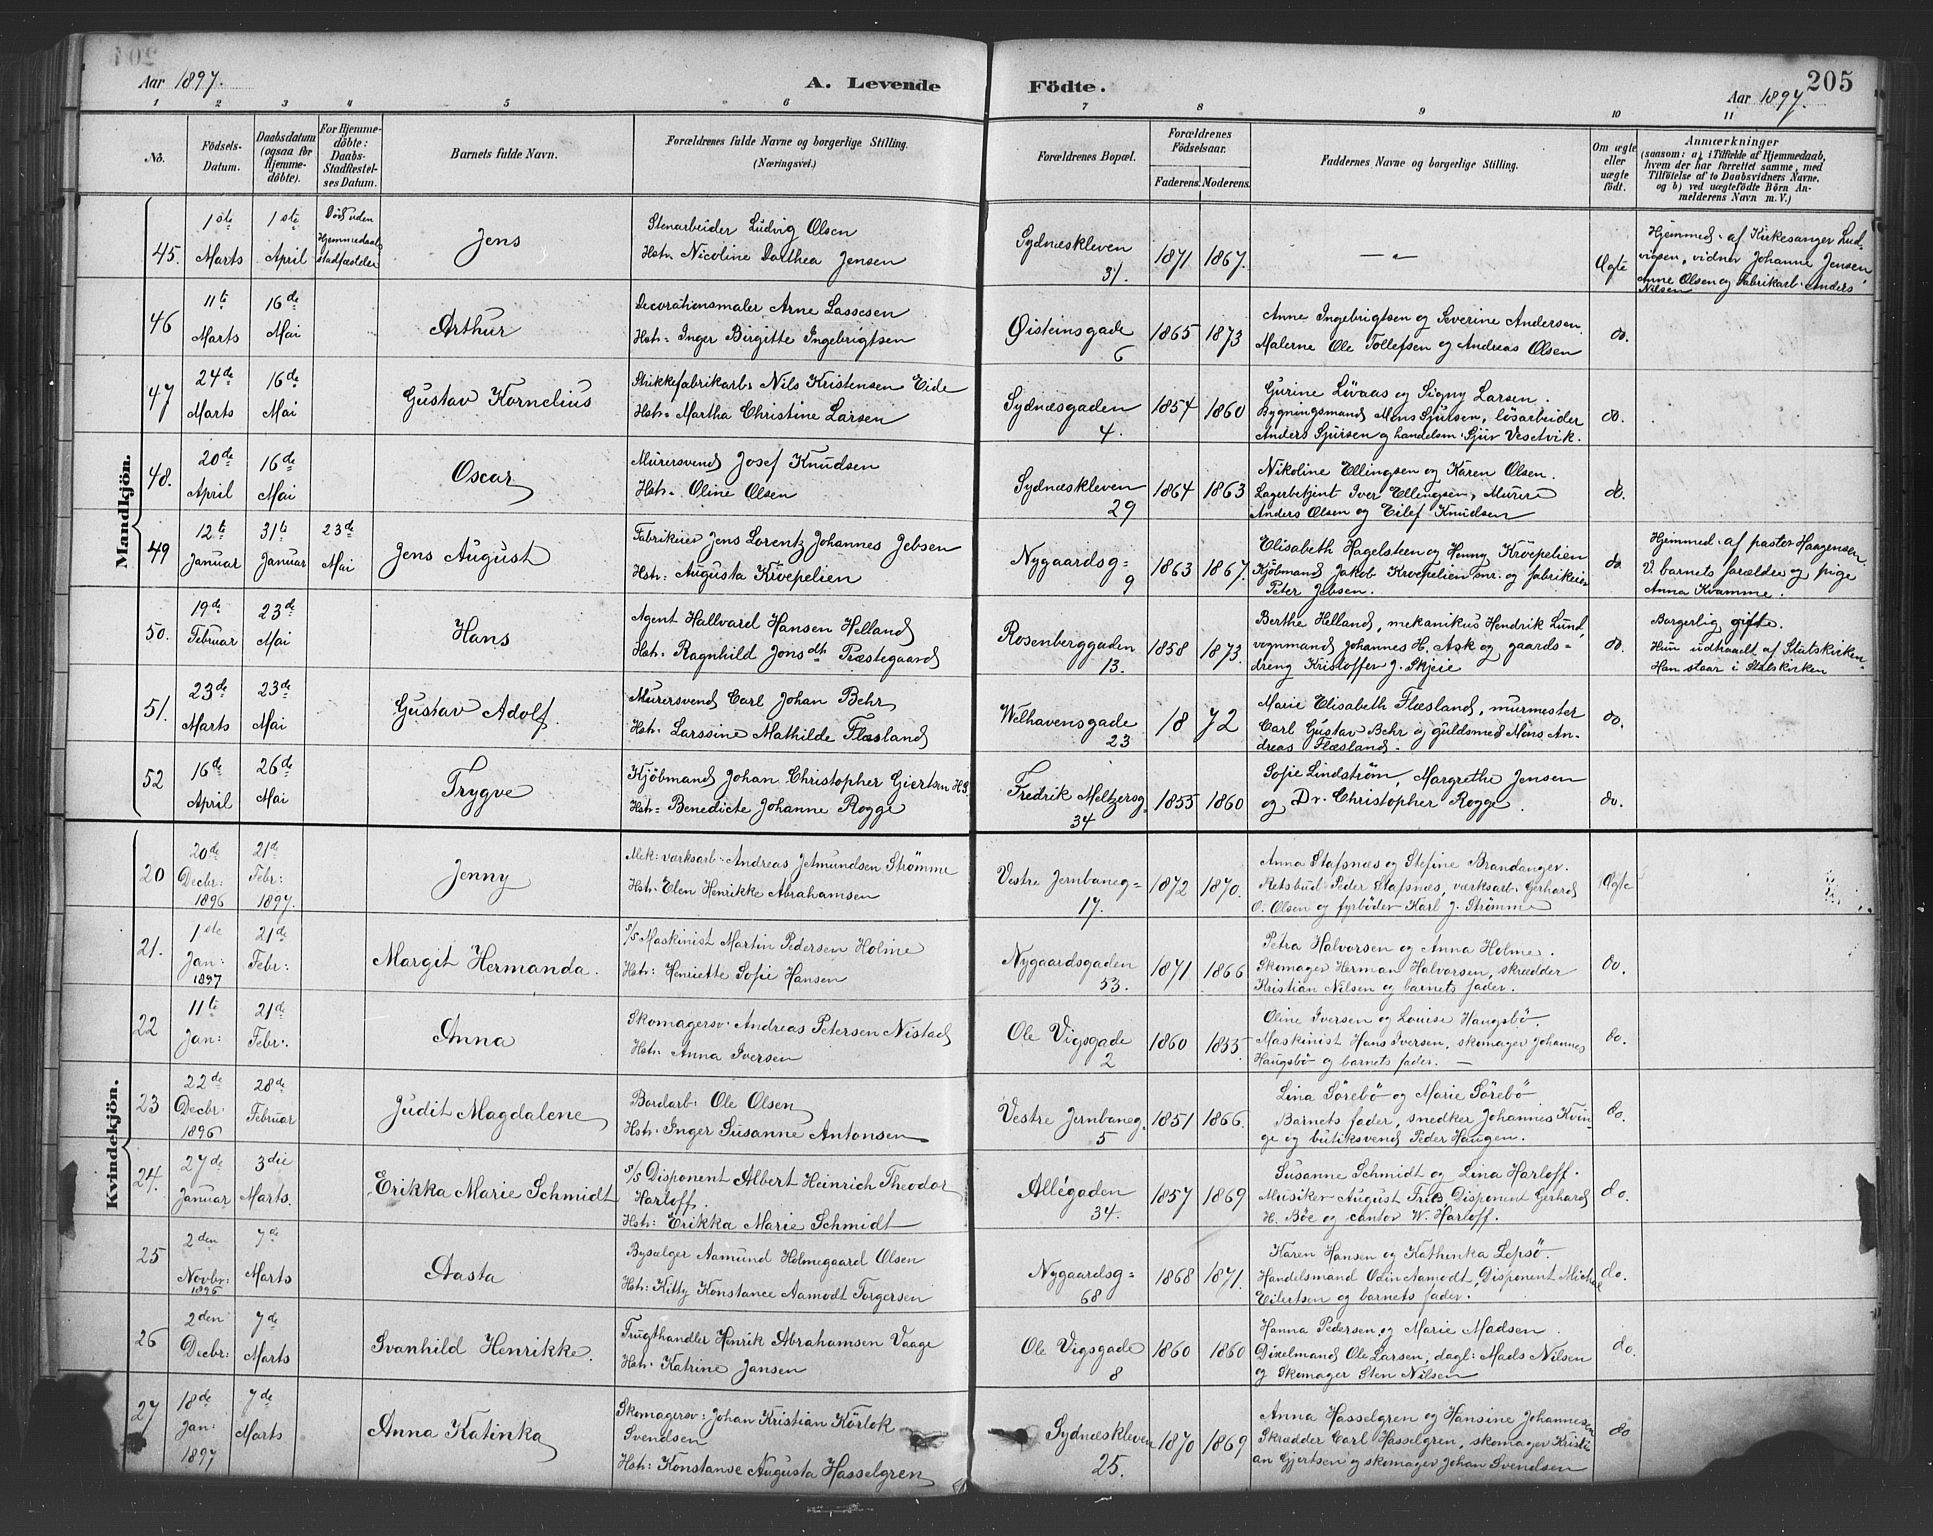 Aar 1897. A. Levende Födte. Aar 1897. 205
1 2 3 4 5 6 7 8 9 10 11
Nô. Födsels-Datum. Daabsdatum (ogsaa for Hjemmedöbte). For Hjemmedöbte: Daabs-Stadfæstelses Datum. Barnets fulde Navn. Forældrenes fulde Navne og borgerlige Stilling. (Næringsvei.) Forældrenes Bopæl. Forældrenes Födselsaar. Faderens. Moderens. Faddernes Navne og borgerlige Stilling. Om ægte eller uægte født. Anmærkninger (saasom: a, i Tilfælde af Hjemmedaab, hvem der har forrettet samme, med Tilföielse af to Daabsvidners Navne, og b) ved uægtefödte Börn Anmelderens Navn m. V.)
Mandkjön.
45. 1ste Marts 1ste April Död uden Hjemmedaabs stadfæstelse Jens
Stenarbeider Ludvig Olsen
Hstr. Nicoline Dorthea Jensen
Sydnæskleven 31. 1871 1867. — „ — Ægte
Hjemmed. af Kirkesanger Lud-
vigsen, vidner Johanne Jensen
Anne Olsen og Fabrikarb. Anders
Nilsen
46 11te Marts 16de Mai Arthur
Decorationsmaler Arne Lassesen
Hstr. Inger Birgitte Ingebrigtsen
Øisteinsgade 6 1865 1873
Anne Ingebrigtsen og Severine Andersen.
Malerne Ole Tollefsen og Andreas Olsen
do.
47 24de Marts 16de Mai Gustav Kornelius
Strikkefabrikarb. Nils Kristensen Eide
Hstr. Martha Christine Larsen
Sydnæsgaden 4. 1854 1860
Gurine Løvaas og Signy Larsen.
Bygningsmand Mons Sjursen, løsarbeider
Anders Sjursen og handelsm. Sjur Vesetvik.
do.
48. 20de April 16de Mai Oscar
Murersvend Josef Knudsen
Hstr. Oline Olsen
Sydnæskleven 29 1864 1863
Nikoline Ellingsen og Karen Olsen.
Lagerbetjent Iver Ellingsen, Murere
Anders Olsen og Eilef Knudsen
do.
49 12te Januar 31te Januar 23de Mai Jens August
Fabrikeier Jens Lorentz Johannes Jebsen
Hstr. Augusta Krøepelien
Nygaardsg= 9 1863 1867.
Elisabeth Hagelsteen og Henny Krøepelien
Kjöbmand Jakob Krøepelien snr. og fabrikeier
Peter Jebsen.
do.
Hjemmed. af pastor Haagensen
V. barnets forældre og pige
Anna Kvamme.
50. 19de Februar 23de Mai Hans
Agent Hallvard Hansen Helland
Hstr. Ragnhild Jonsdt. Præstegaard
Rosenberggaden 13. 1858 1873.
Berthe Helland, mekanikus Hendrik Lund,
vognmand Johannes H. Ask og gaards=
dreng Kristoffer J. Skjeie
do.
Borgerlig gifte.
Hun udtraadt af Statskirken.
Han staar i Statskirken
51. 23de Marts 23de Mai Gustav Adolf.
Murersvend Carl Johan Behr
Hstr. Larssine Mathilde Flæsland
Welhavensgade 23 18 72
Marie Elisabeth Flæsland, murmester
Carl Gustav Behr og guldsmed Mons An-
dreas Flæsland.
do.
52 16de April 26de Mai Trygve
Kjöbmand Johan Christopher Giertsen H.S.
Hstr. Benedicte Johanne Rogge
Fredrik Meltzersg. 34 1855 1860
Sofie Lindstrøm, Margrethe Jensen
og Dr. Christopher Rogge.
do.
Kvindekjön.
20 20de Decbr: 1896 21de Febr: 1897. Jenny
Mek: værksarb. Andreas Jetmundsen Strømme
Hstr. Elen Henrikke Abrahamsen
Vestre Jernbaneg= 17. 1872 1870.
Anna Stafsnæs og Stefine Brandanger.
Retsbud Peder Stafsnæs, værksarb. Gerhard
O. Olsen og fyrböder Karl J. Strømme
Ægte
21. 1ste Jan: 1897 21de Febr: Margit Hermanda.
S/S Maskinist Martin Pedersen Holme
Hstr: Henriette Sofie Hansen
Nygaardsgaden 53. 1871 1866
Petra Halvorsen og Anna Holme.
Skomager Herman Halvorsen, skrædder
Kristian Nilsen og barnets fader.
do.
22 11te Jan: 21de Febr: Anna
Skomagersv. Andreas Petersen Nistad
Hstr. Anna Iversen
Ole Vigsgade 2 1860 1855.
Oline Iversen og Louise Haugsbö.
Maskinist Hans Iversen, skomager Johannes
Haugsbö og barnets fader. —
do.
23 22de Decbr: 1896 28de Februar Judit Magdalene
Bordarb: Ole Olsen
Hstr. Inger Susanne Antonsen
Vestre Jernbaneg. 5 1851 1866.
Lina Sörebö og Marie Sörebö
Barnets fader, snedker Johannes Kvin-
ge og butiksvend Peder Haugen.
do.
24. 27de Januar 3die Marts. Erikka Marie Schmidt
S/S Disponent Albert Heinrich Theodor
Harloff.
Hstr: Erikka Marie Schmidt
Allégaden 34. 1857 1869
Susanne Schmidt og Lina Harloff.
Musiker August Fries Disponent Gerhard
H. Böe og cantor W. Harloff.
do.
25 2den Novbr: 1896 7de Marts Aasta
Bysælger Aamund Holmegaard Olsen
Hstr: Kitty Konstance Aamodt Torgersen
Nygaardsg= 68 1868 1871.
Karen Hansen og Kathinka Lepsö.
Handelsmand Odin Aamodt, Disponent Michal
Eilertsen og barnets fader.
do.
26 2den Decbr: 7de Marts Svanhild Henrikke.
Frugthandler Henrik Abrahamsen Vaage
Hstr. Katrine Jansen
Ole Vigsgade 8 1860 1860
Hanna Pedersen og Marie Madsen.
Dixelmand Ole Larsen, dagl: Mads Nilsen
og Skomager Sten Nilsen
do.
27 18de Jan: 1897 7de Marts Anna Katinka
Skomagersv: Johan Kristian Körlok
Svendsen
Hstr: Konstanse Augusta Hasselgren
Sydnæskleven 25. 1870 1869
Anna Hasselgren og Hansine Johannesen
Skrædder Carl Hasselgren, skomager Kristi
an Gjertsen og skomager Johan Svendsen
do